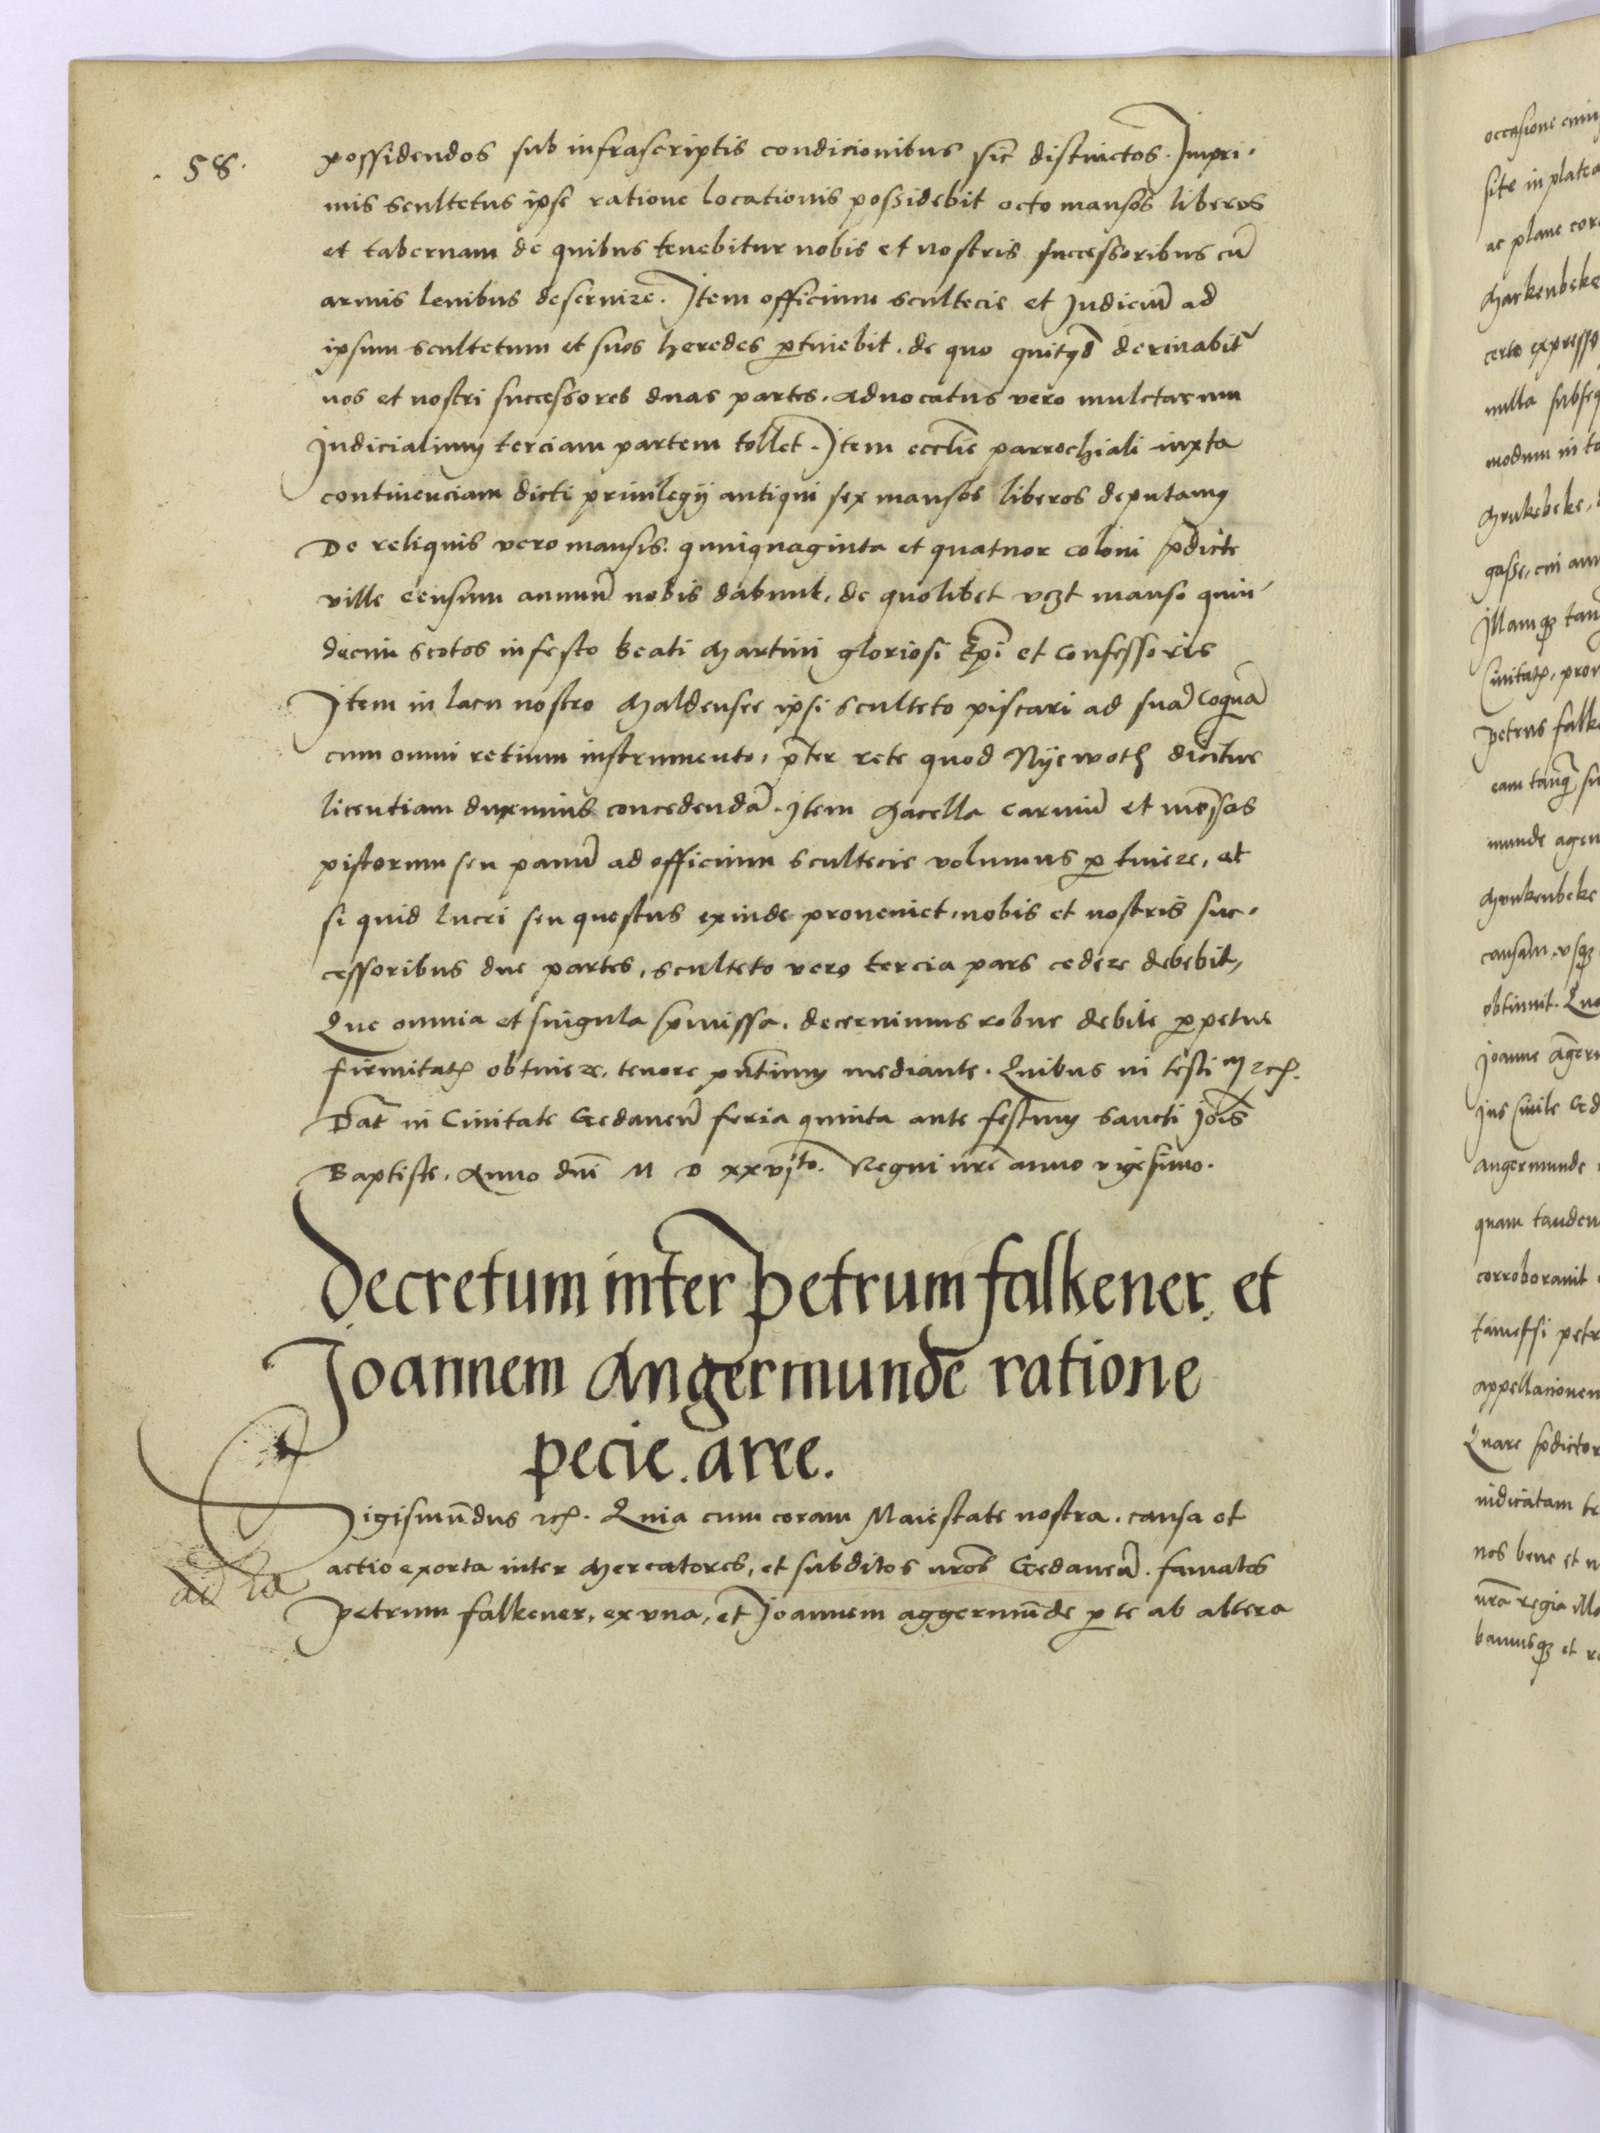 . 58 .
possidendos sub infrascriptis condicionibus sic distinctos. Inpri-
mis scultetus ipse ratione locationis possidebit octo mansos liberos
et tabernam de quibus tenebitur nobis et nostris successoribus cū
armis lenibus deseruire. Item officium scultecie et Judiciū ad
ipsum scultetum et suos heredes ptinebit. de quo quitqd deriuabit
nos et nostri successores duas partes. Aduocatus vero mulctarum
Judicialium terciam partem tollet. Item ecclie parrochiali iuxta
continenciam dicti priuilegij antiqui sex mansos liberos deputamus
De reliquis vero mansis quinquaginta et quatuor coloni pdicte
ville censum annuū nobis dabunt, de quolibet vzt manso quin-
decim scotos in festo beati Martini gloriosi Epi et confessoris
Item in lacu nostro Maldensee ipsi sculteto piscari ad suā Coquinā
cum omni retium instrumento, pter rete quod Nyewoth dicitur
licentiam duximus concedendā. Item Macella carniū et mensas
pistorum seu panū ad officium scultecie volumus ptinere, et
si quid lucri seu questus exinde proueniet, nobis et nostris suc-
cessoribus due partes, sculteto vero tercia pars cedere debebit,
Que omnia et singula pmissa. decernimus robur debite ppetue
firmitatis obtinere, tenore pntium mediante. Quibus in testim etc.
Dat in Ciuitate Gedaneñ feria quinta ante festum sancti Jois
Baptiste. Anno dni M D xxvjto. Regni nri anno vigesimo.
Decretum inter Petrum falkener et
Joannem Angermunde ratione
pecie. aree.
Sigismūdus etc. Quia cum coram Maiestate nostra. causa et
actio exorta inter Mercatores, et subditos nros Gedaneñ. famatos
Petrum falkener, ex vna, et Joannem aggermūde pte ab altera
occasione
site in platea
ac plane
Markenbeke
certo expresso
nulla
modum in
gasse, cui
Illamqz
Ciuitatis,
petrus
eam
munde
Munkenbeke
causam. vsqz
obtinuit.
Joanne
Jus Ciuile
angermunde
quam tandem
corroborauit
tametsi
appellacionem
Quare pdictor
iudicatam
nos bene et
nra regia
bamusqz et